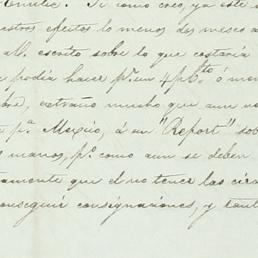 Emilie. Si como creo, ya esté
estros efectos lo menos dos meses a
M. escrito sobre lo que costaria
podia hacer pr. un 4 pCto ó men
bre, extraño mucho que aun no
pa. Mexico, á un "Report" sob
s manos, po. como aun se deben
tamente que el no tener las circ
onseguir consignaciones, y tant